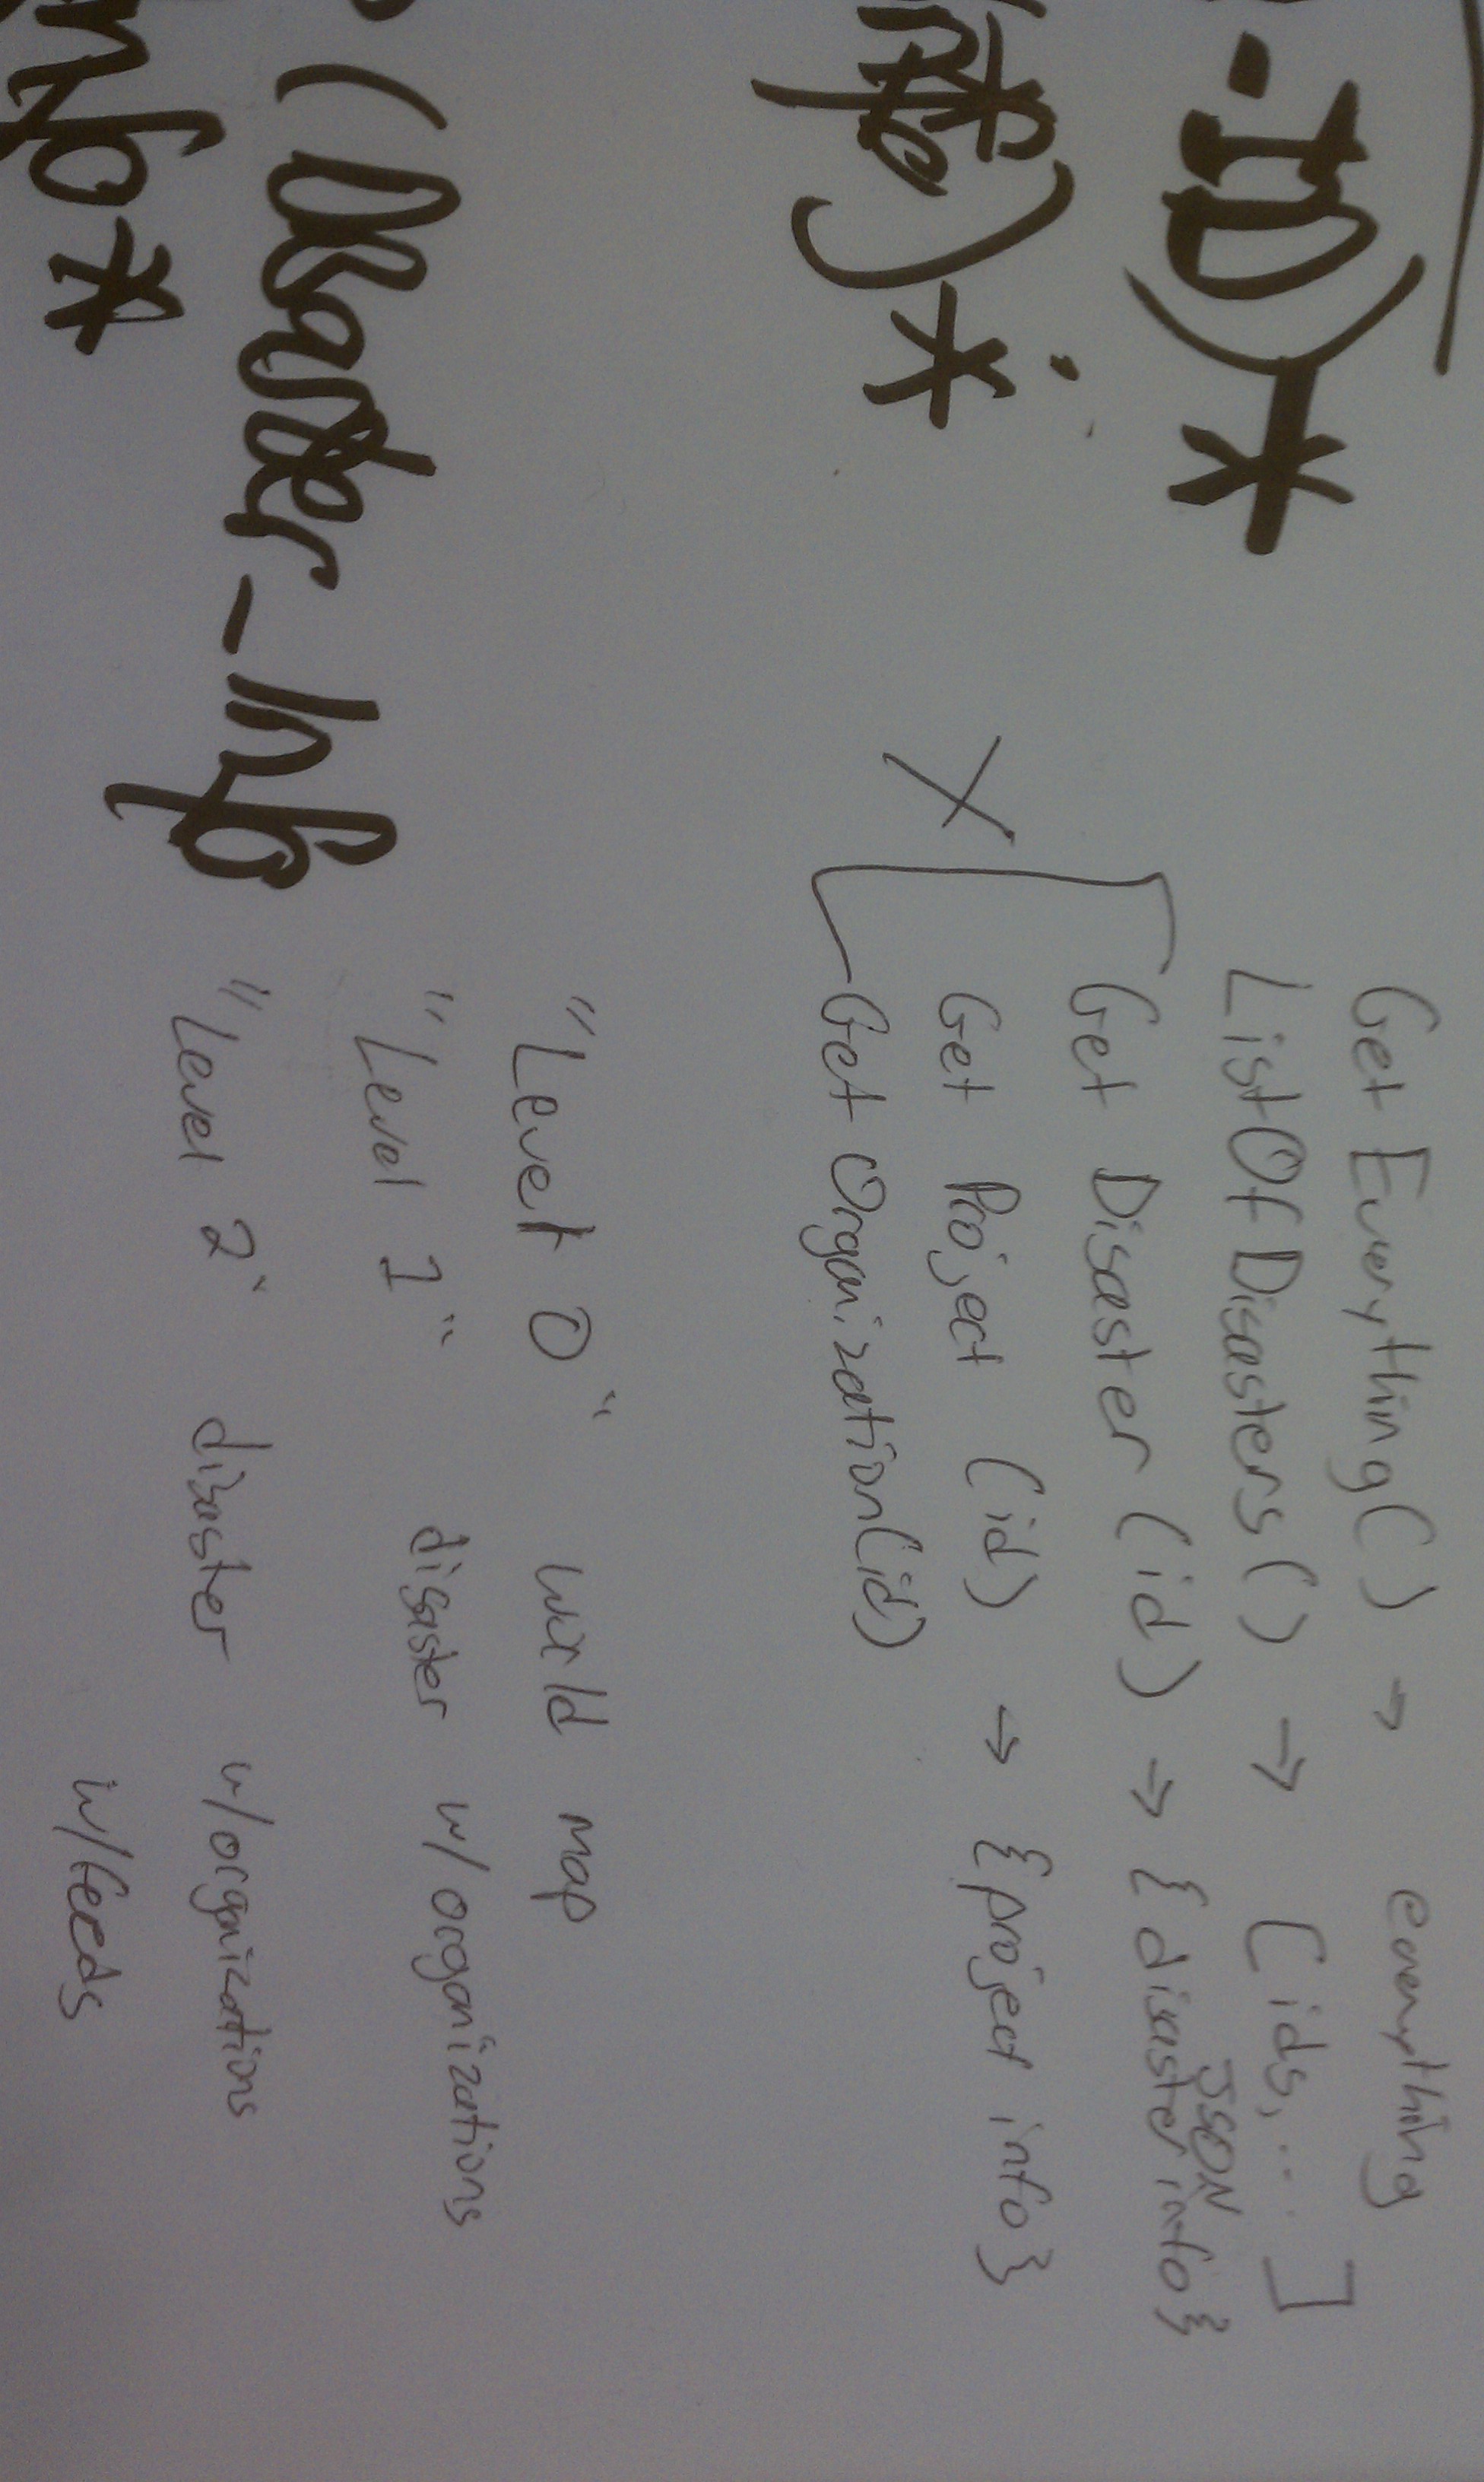 -ID)*
nfo)*
(Disaster-Info
nfo*
Get Everything() → everything
ListOfDisasters() → [ids,...]
JSON
Get Disaster (id) → {disaster info}
X
Get Project (id) → {project info}
Get Organization(id)
"Level 0" world map
"Level 1" disaster w/organizations
"Level 2" disaster w/organizations
w/feeds